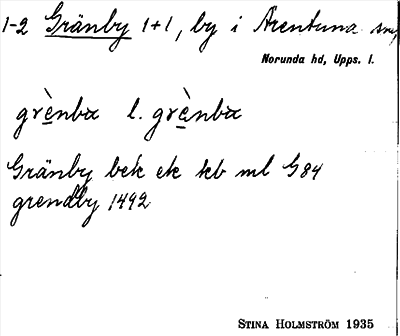 1-2 Gränby 1+1, by i Ärentuna sn,
Norunda hd, Upps. l.
grènbæ l. grènbæ
Gränby bek ek kb ml G84
grendby 1492
STINA HOLMSTRÖM 1935